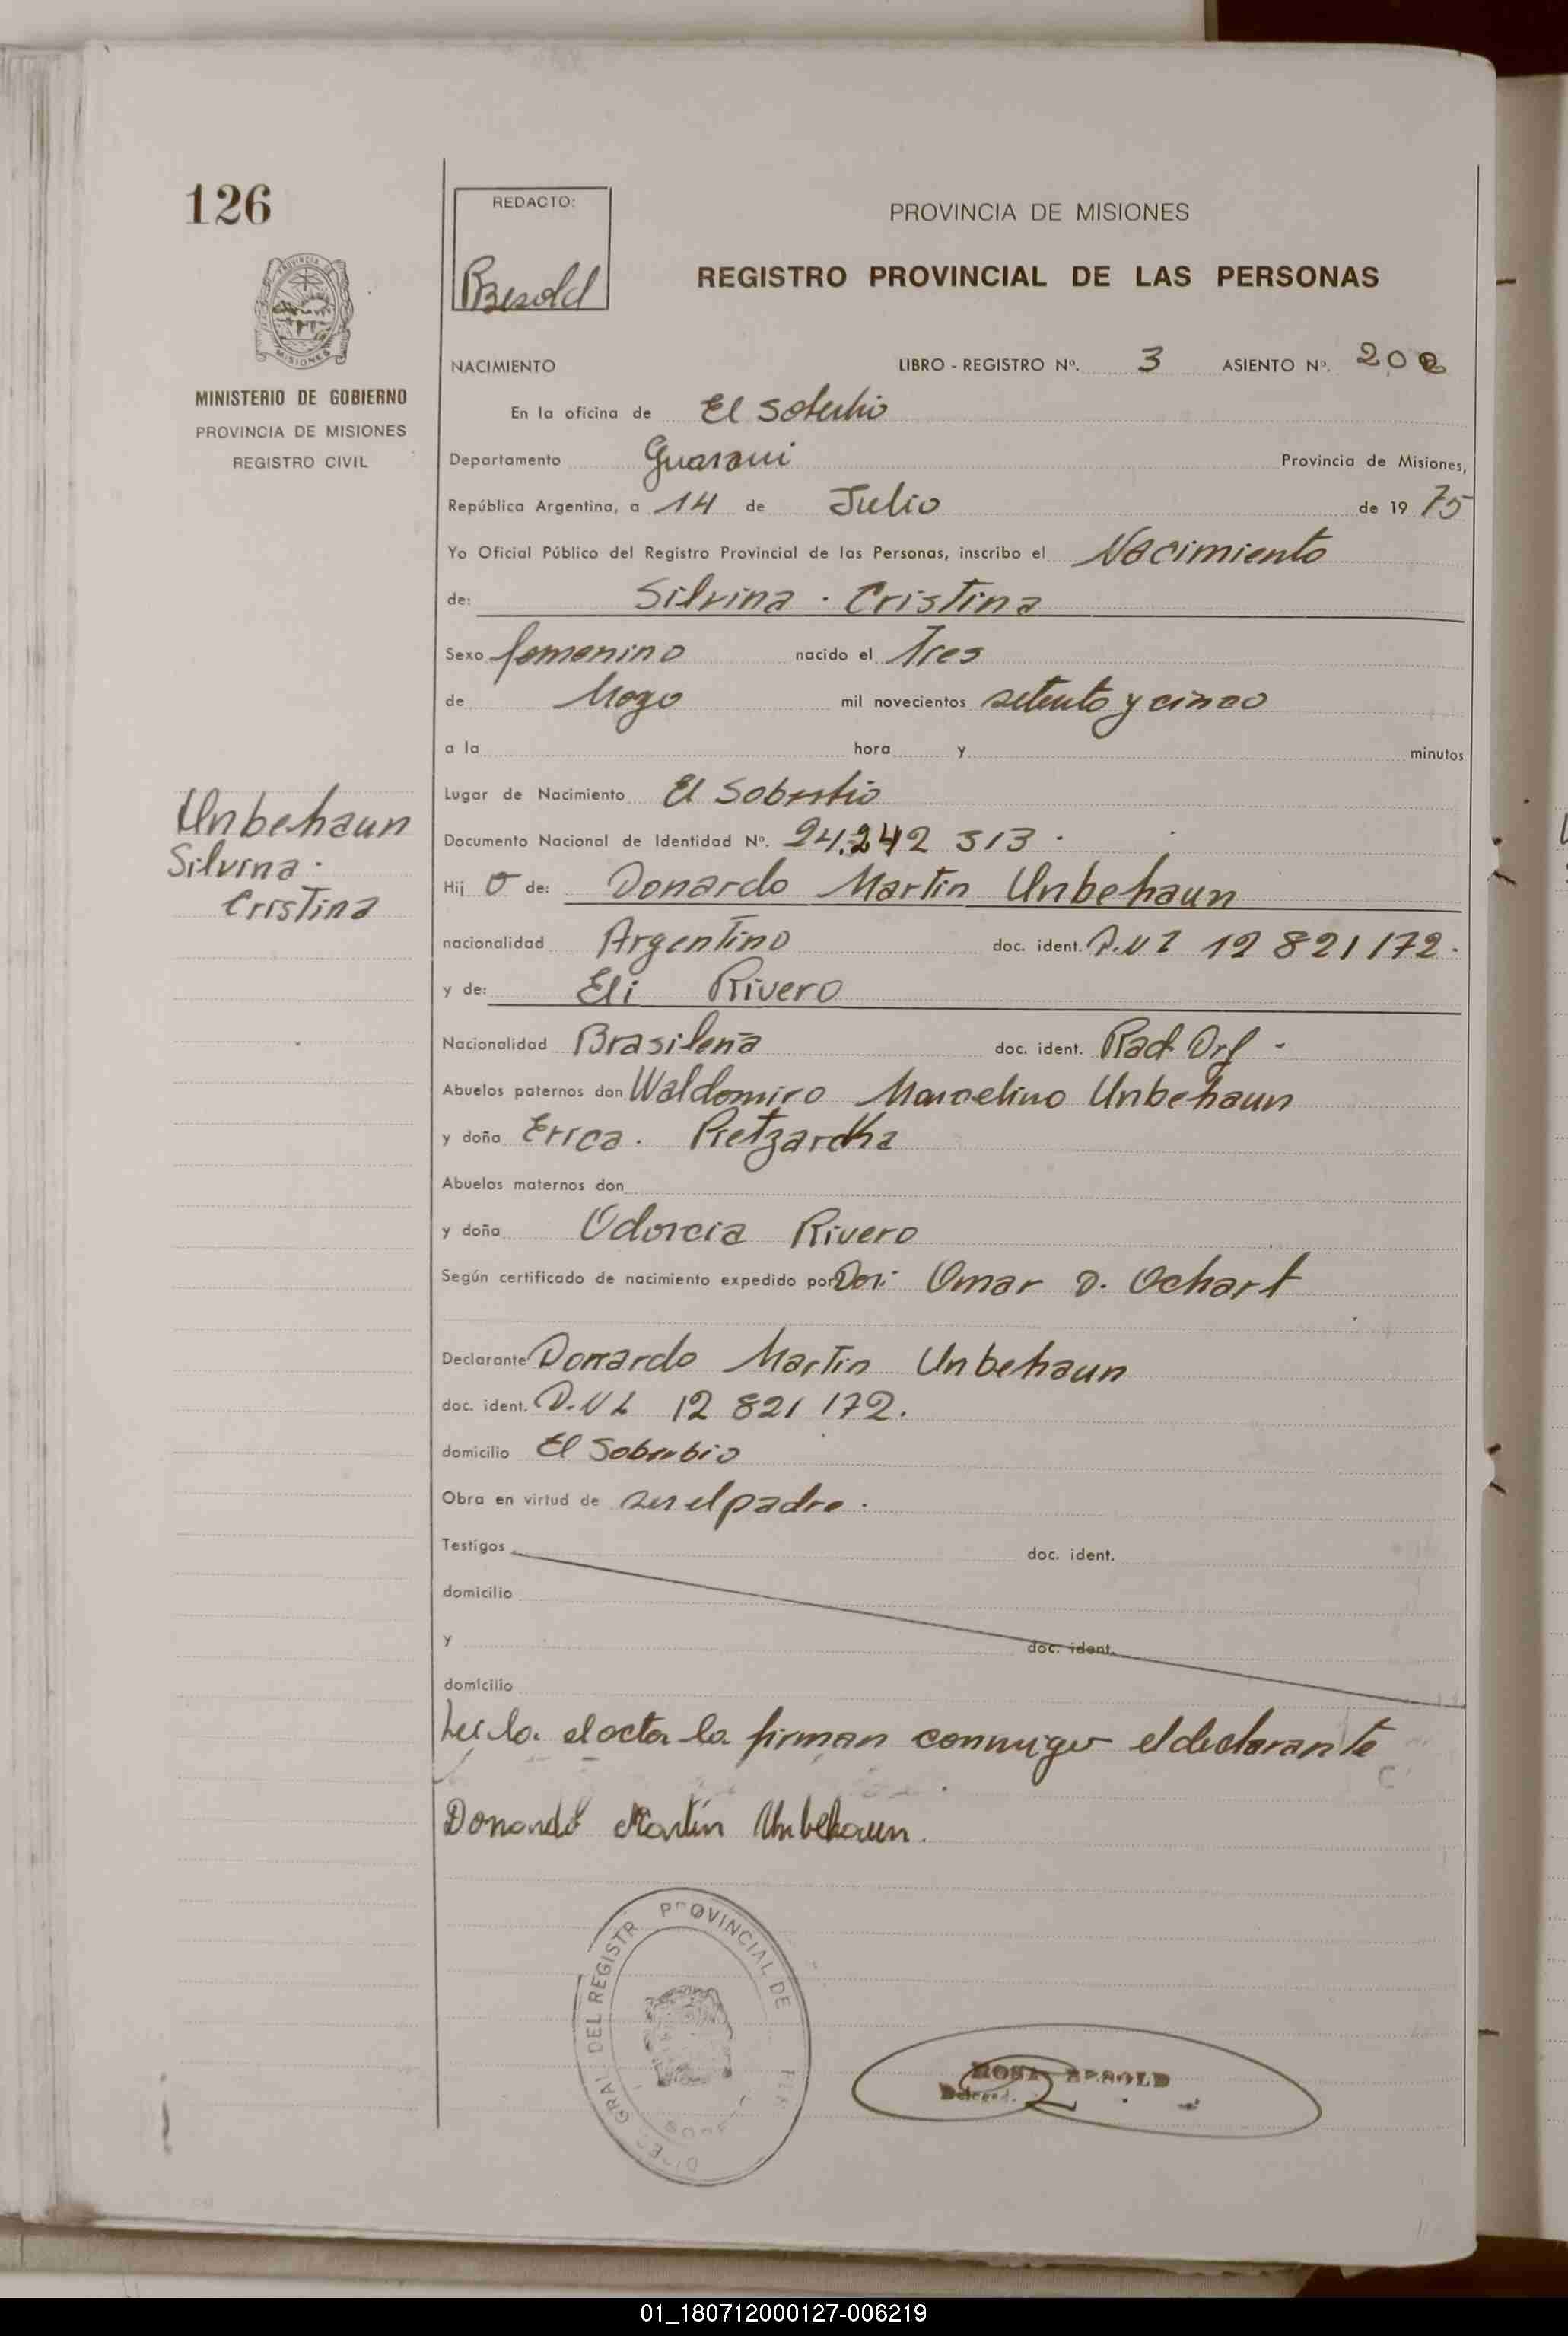 126
REDACTO:
Besold
PROVINCIA DE MISIONES
REGISTRO PROVINCIAL DE LAS PERSONAS
MINISTERIO DE GOBIERNO
PROVINCIA DE MISIONES
REGISTRO CIVIL
NACIMIENTO LIBRO - REGISTRO Nº. 3 ASIENTO Nº. 202
En la oficina de El Soberbio
Departamento Guarani Provincia de Misiones,
República Argentina, a 14 de Julio de 19 75
Yo Oficial Público del Registro Provincial de las Personas, inscribo el Nacimiento
de: Silvina . Cristina
Sexo femenino nacido el Tres
de Mayo mil novecientos setenta y cinco
a la hora y minutos
Lugar de Nacimiento El Soberbio
Unbehaun
Silvina .
Cristina
Documento Nacional de Identidad Nº. 24.242 313 .
Hij o de: Donardo Martin Unbehaun
nacionalidad Argentino doc. ident. D.N I 12 821 172.
y de: Eli Rivero
Nacionalidad Brasileña doc. ident.
Abuelos paternos don Waldomiro Marcelino Unbehaun
y doña Erica .
Abuelos maternos don
y doña Odorcia Rivero
Según certificado de nacimiento expedido por Omar D. Ochart
Declarante Donardo Martin Unbehaun
doc. ident. D.N I 12 821 172.
domicilio El Soberbio
Obra en virtud de ser el padre .
Testigos doc. ident.
domicilio
y doc. ident.
domicilio
Leida el acta la firman conmigo el declarante
Donardo Martín Unbehaun.
PROVINCIAL DE
GRAL DEL REGISTR
ROSA BESOLD
01_180712000127-006219